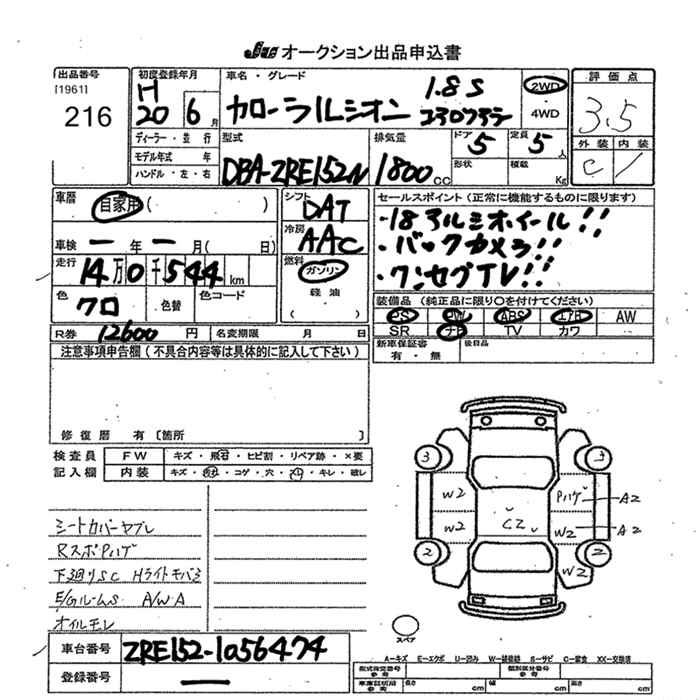 JU オークション出品申込書
出品番号
[1961]
216
初度登録年月
H
20 6月
ディーラー・並行
モデル年式 年
ハンドル・左・右
車名・グレード
1.8S
カローラルミオン
2WD
・
4WD
型式
DBA-ZRE152N
排気量
1800 CC
ドア 5
定員 5人
形状
積載
Kg
評価点
3.5
外装 内装
C /
車歴
自家用 ( )
シフト
DAT
冷房
AAC
車検 ー年ー月( 日)
走行
14万0千544km
燃料
ガソリン
軽油
( )
色
クロ
色替
色コード
R券 12600円
名変期限 月 日
セールスポイント (正常に機能するものに限ります)
・18アルミホイール!!
・バックカメラ!!
・ワンセグTV!!
装備品 (純正品に限り○を付けてください)
PS PW ABS エアB AW
SR ナビ TV カワ
新車保証書
有・無
後日品
注意事項申告欄 (不具合内容等は具体的に記入して下さい)
修復歴 有 [箇所 ]
検査員
記入欄
FW キズ・飛石・ヒビ割・リペア跡・×要
内装 キズ・汚れ・コゲ・穴・スレ・キレ・破レ
シートカバーヤブレ
RスポPハゲ
下廻りSC Hライトモバラ
E/Gルーム A/W A
オイルモレ
3 3
W2 Pハゲ A2
W2 C2 W2 A2
2 2
W2
スペア
車台番号 ZRE152-1056474
登録番号 ー
A-キズ E-エクボ U-凹み W-装修跡 S-サビ C-腐食 XX-交換済
型式指定番号
参考
類別区分番号
参考
車庫証明用
参考
長さ cm 幅 cm 高さ cm